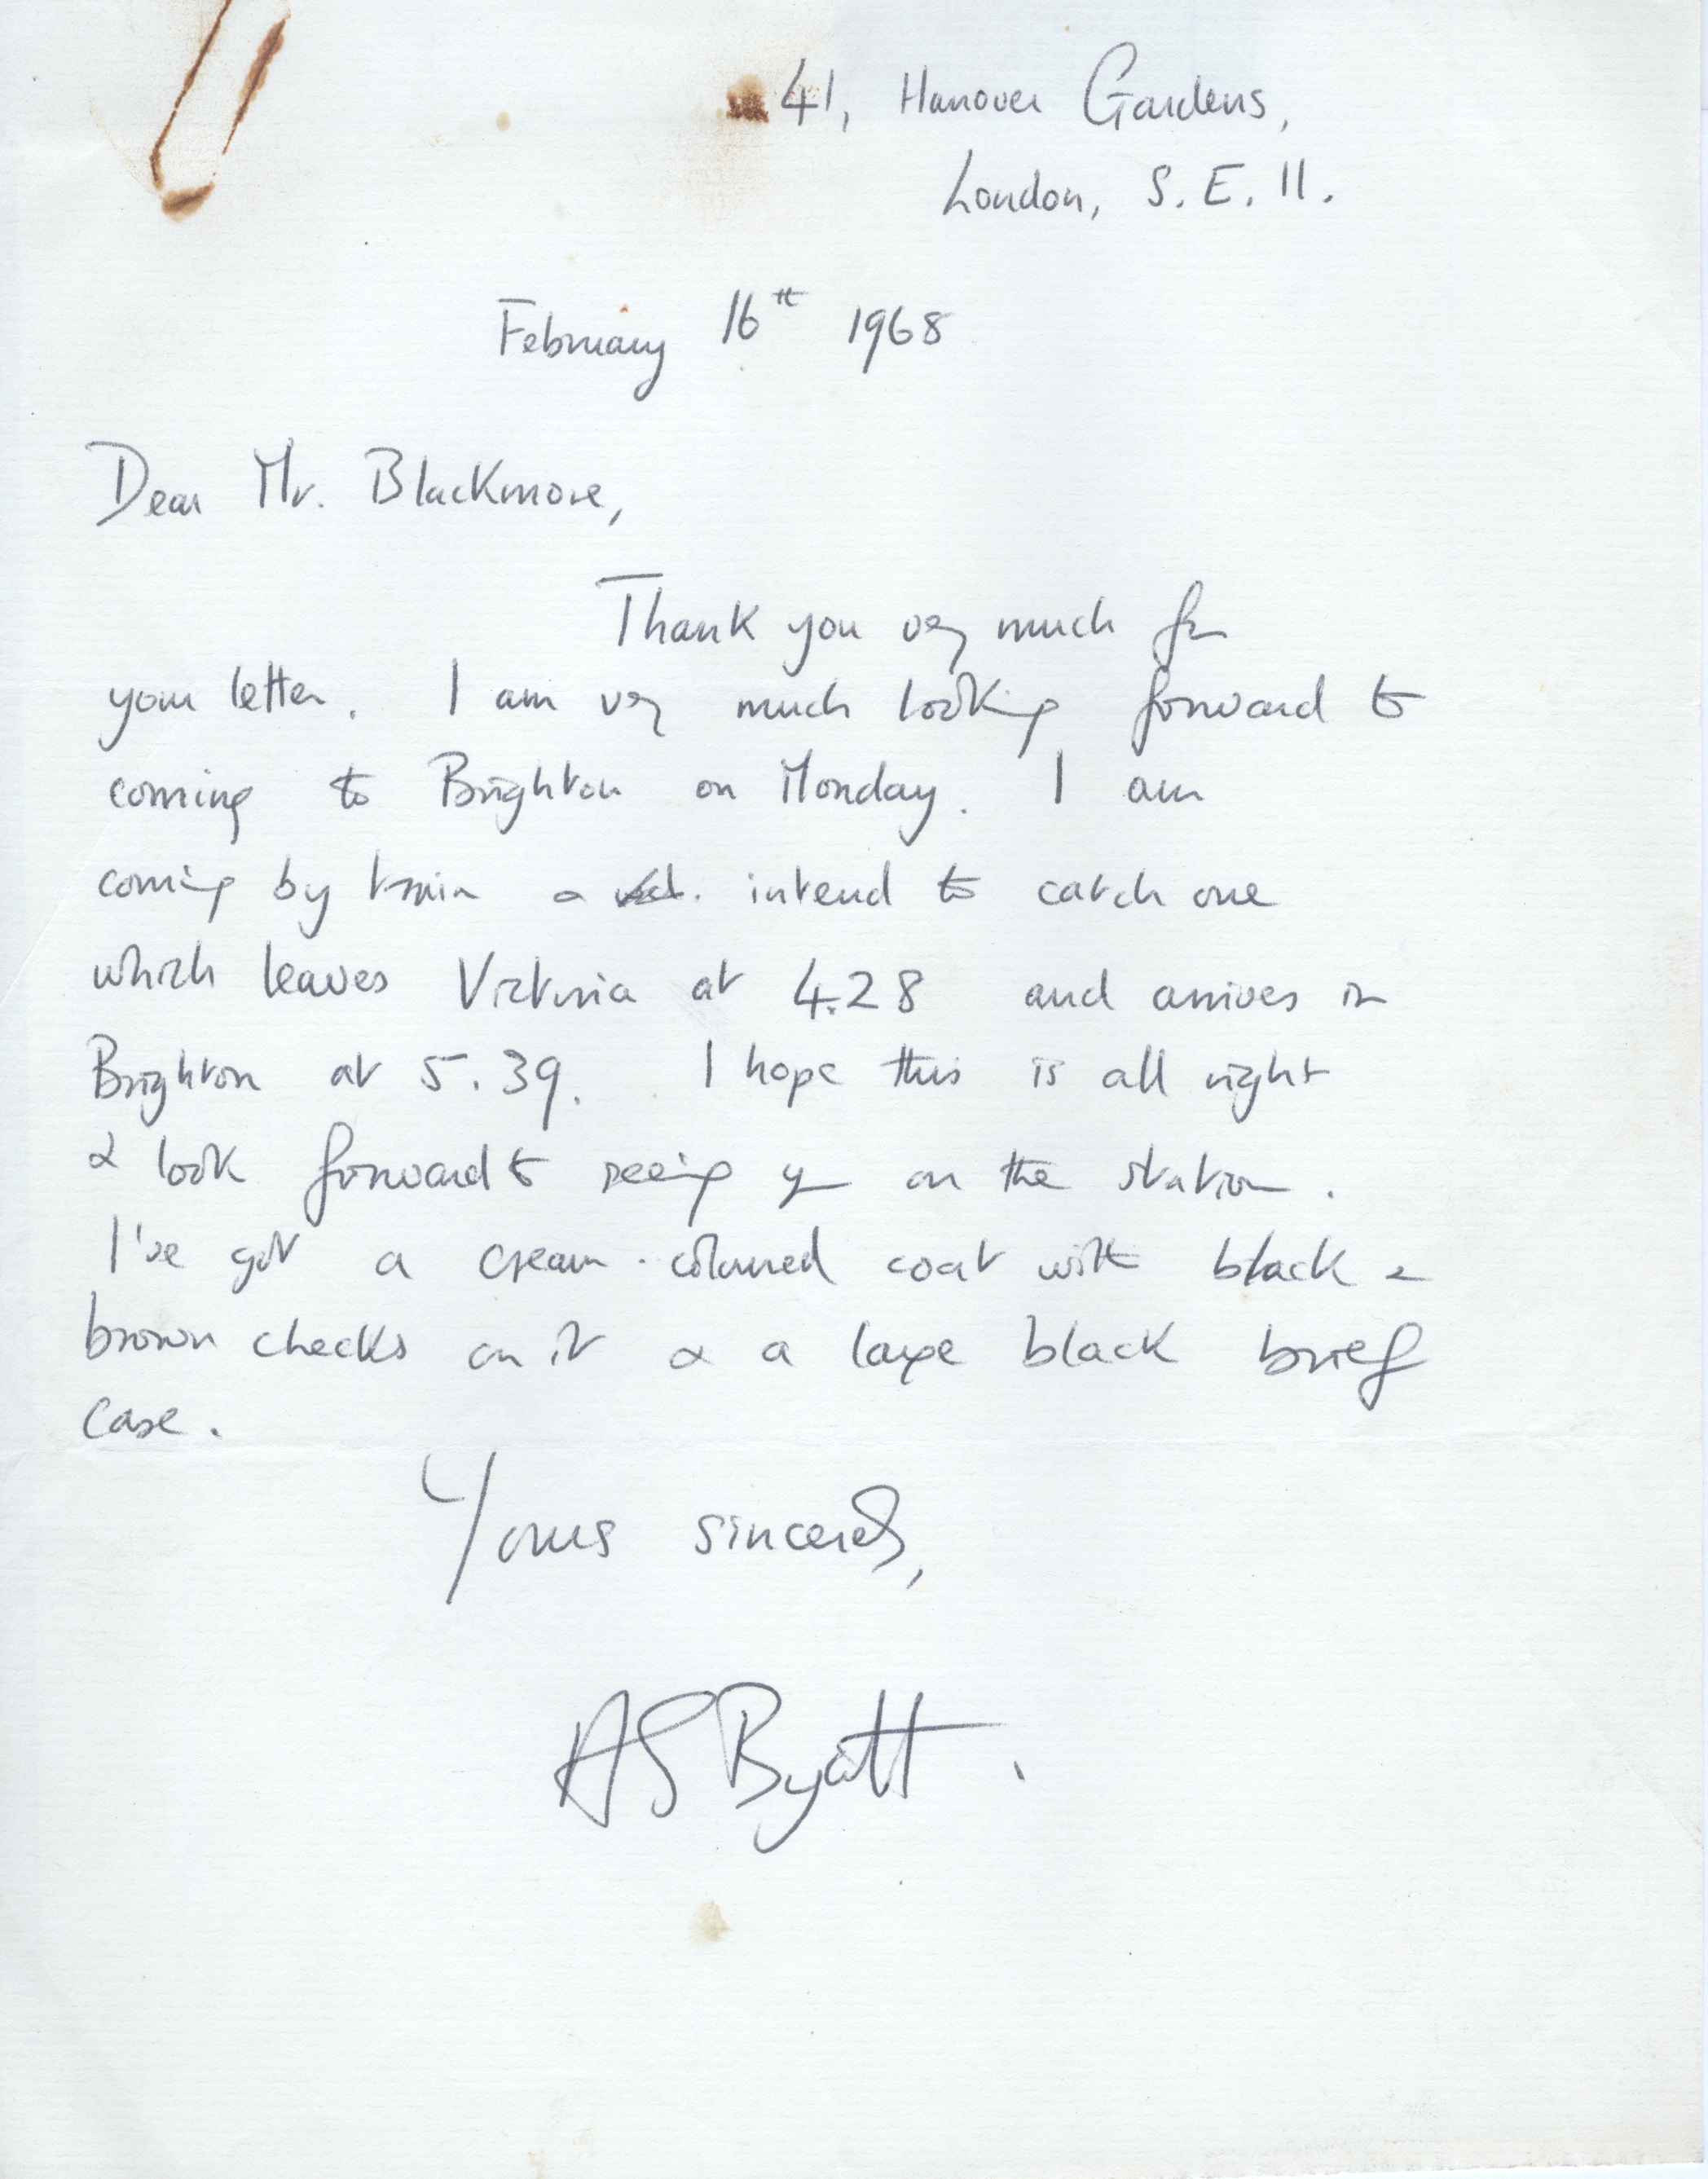 41, Hanover Gardens,
London, S.E. 11.
February 16th 1968
Dear Mr. Blackmore,
Thank you very much for
your letter. I am very much looking forward to
coming to Brighton on Monday. I am
coming by train & intend to catch one
which leaves Victoria at 4.28 and arrives in
Brighton at 5.39. I hope this is all right
& look forward to seeing you on the station.
I've got a cream-coloured coat with black &
brown checks on it & a large black brief
case.
Yours sincerely,
AS Byatt.